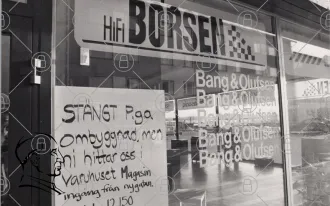 HiFi BÖRSEN
Bang & Olufse
Bang & Olufse
Bang & Olufse
Bang & Olufse
Bang & Olufse
Bang & Olufse
STÄNGT Pga
ombyggnad, men
ni hittar oss i
varuhuset Magasin
ingång från nygatan,